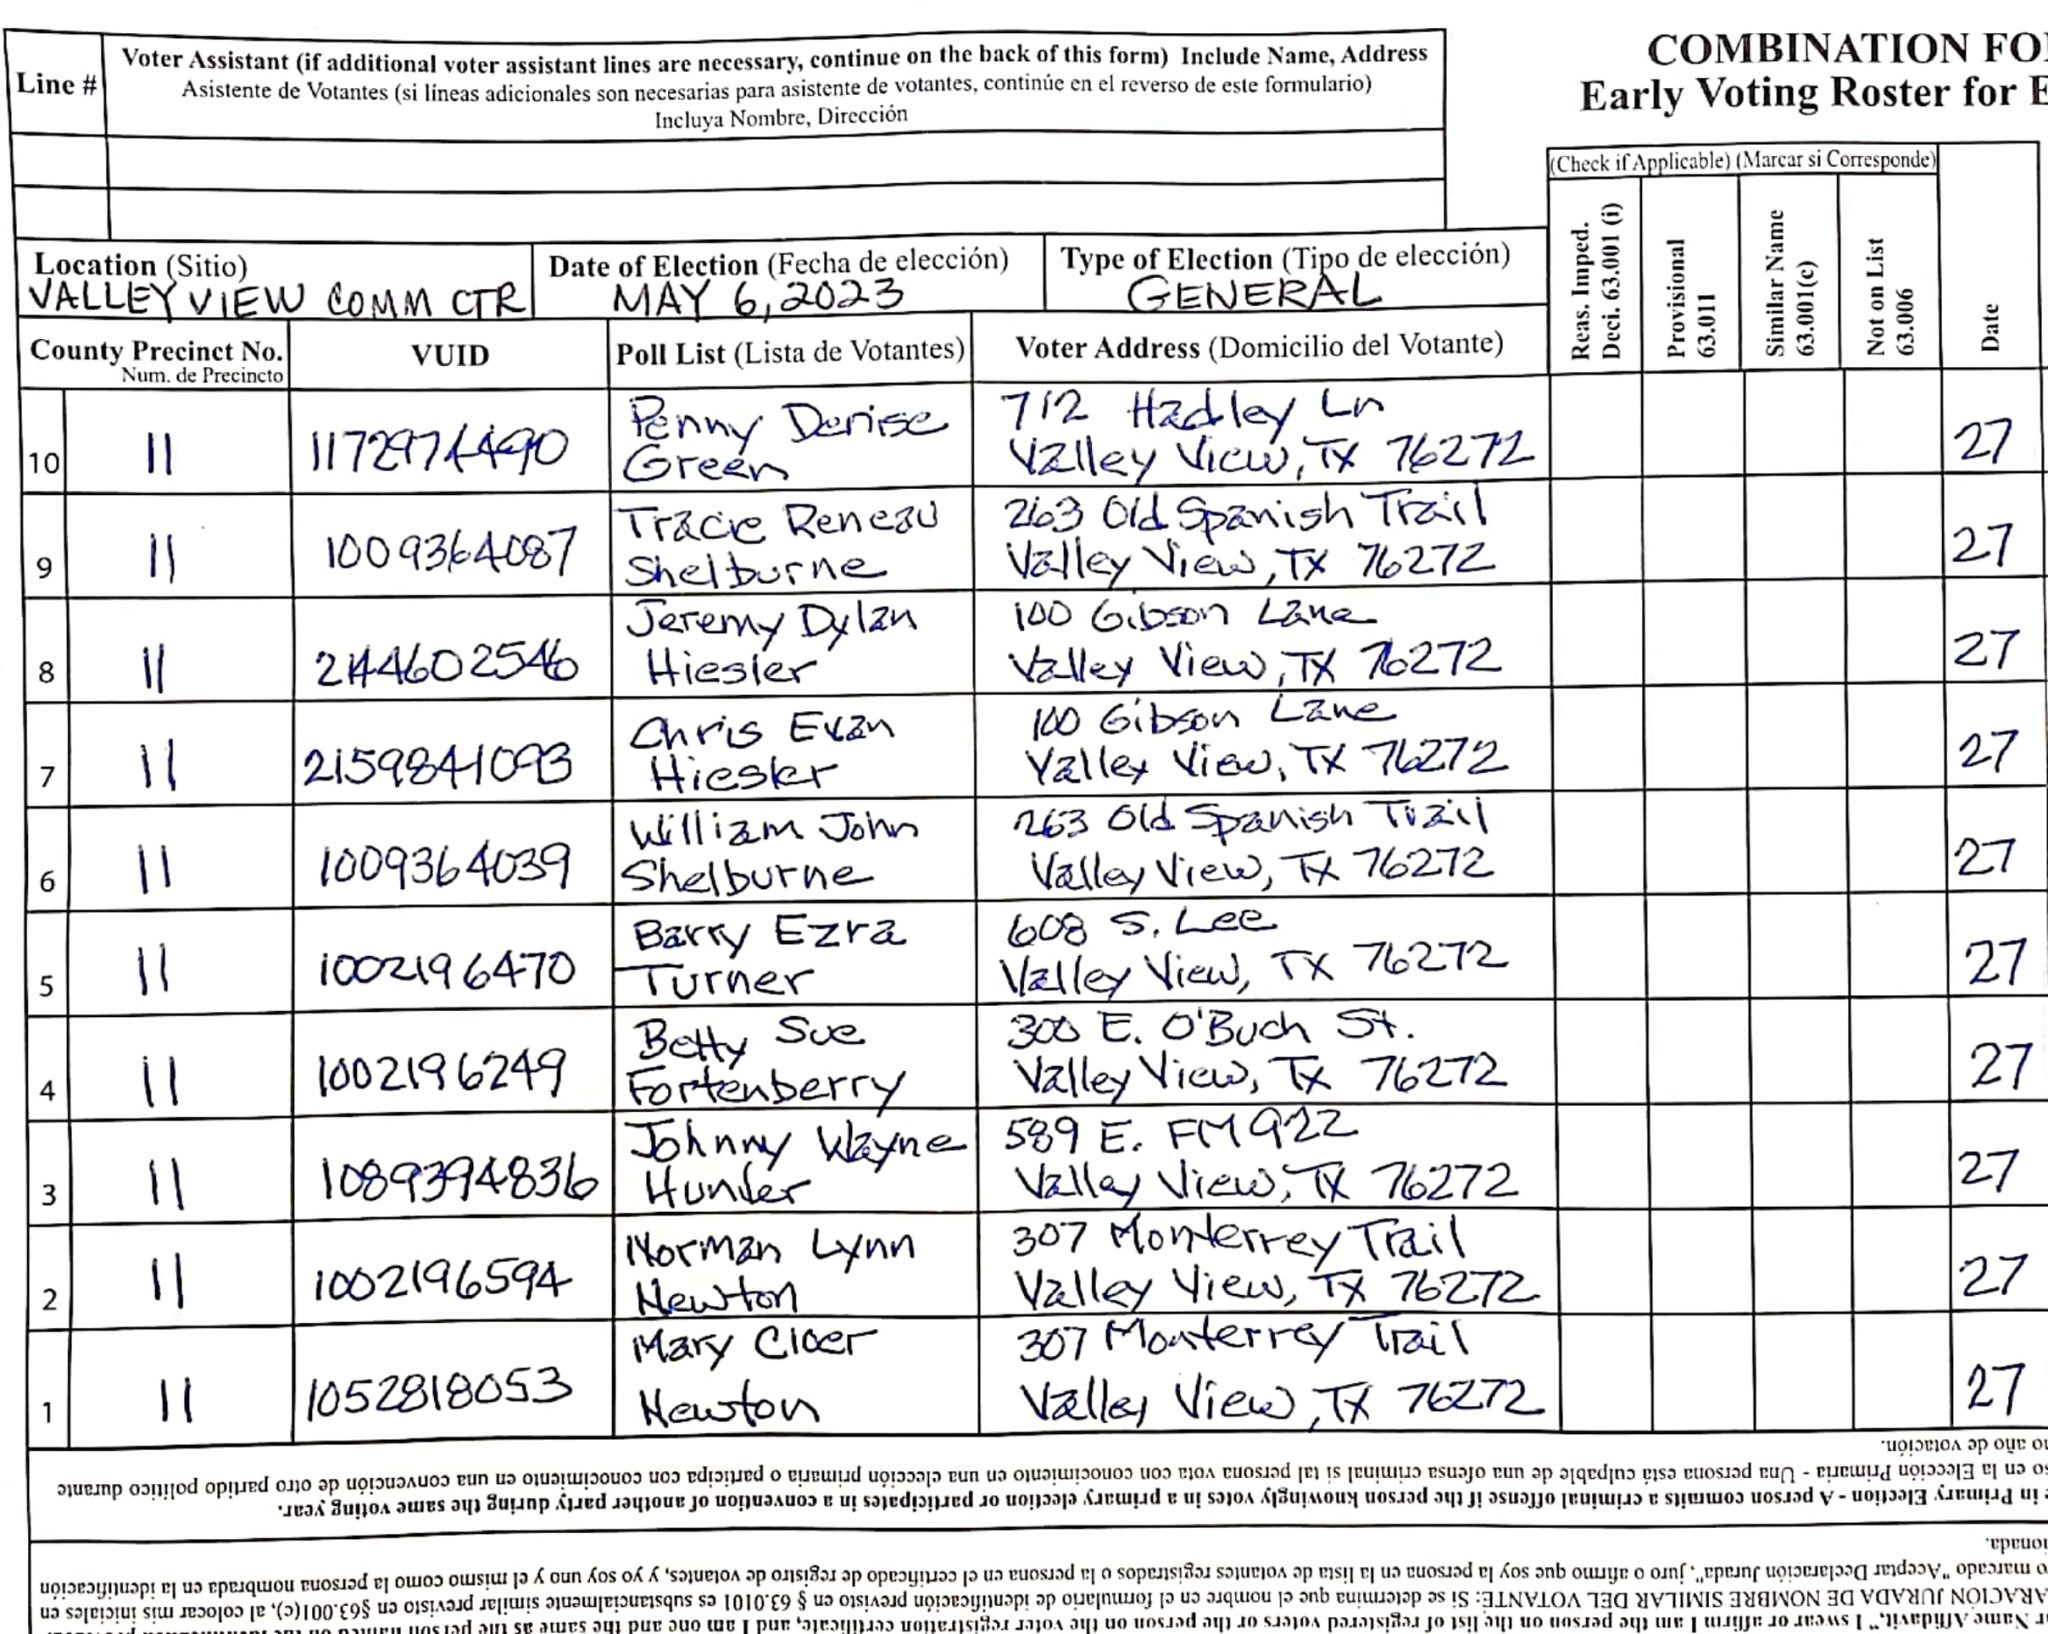 COMBINATION FO
Early Voting Roster for E
Line #
Voter Assistant (if additional voter assistant lines are necessary, continue on the back of this form) Include Name, Address
Asistente de Votantes (si líneas adicionales son necesarias para asistente de votantes, continúe en el reverso de este formulario)
Incluya Nombre, Dirección
(Check if Applicable) (Marcar si Corresponde)
Reas. Imped.
Deci. 63.001 (i)
Provisional
63.011
Similar Name
63.001(c)
Not on List
63.006
Date
Location (Sitio)
VALLEY VIEW COMM CTR
Date of Election (Fecha de elección)
MAY 6, 2023
Type of Election (Tipo de elección)
GENERAL
County Precinct No.
Num. de Precincto
VUID
Poll List (Lista de Votantes)
Voter Address (Domicilio del Votante)
10 11 Penny Denise 712 Hadley Ln
Green Valley View, TX 76272 27
9 11 1009364087 Tracie Reneau 263 Old Spanish Trail
Shelburne Valley View, TX 76272 27
8 11 Jeremy Dylan 100 Gibson Lane
Hiesler Valley View, TX 76272 27
7 11 2159841093 Chris Evan 100 Gibson Lane
Hiesler Valley View, TX 76272 27
6 11 1009364039 William John 263 Old Spanish Trail
Shelburne Valley View, TX 76272 27
5 11 1002196470 Barry Ezra 608 S. Lee
Turner Valley View, TX 76272 27
4 11 1002196249 Betty Sue 300 E. O'Buch St.
Fortenberry Valley View, TX 76272 27
3 11 1089394836 Johnny Wayne 589 E. FM 922
Hunter Valley View, TX 76272 27
2 11 1002196594 Norman Lynn 307 Monterrey Trail
Newton Valley View, TX 76272 27
1 11 1052818053 Mary Cloer 307 Monterrey Trail
Newton Valley View, TX 76272 27
r Name Affidavit," I swear or affirm I am the person on the list of registered voters or the person on the voter registration certificate, and I am one and the same as the person
ARACIÓN JURADA DE NOMBRE SIMILAR DEL VOTANTE: Si se determina que el nombre en el formulario de identificación previsto en § 63.0101 es substancialmente similar previsto en §63.001(c), al colocar mis iniciales en
o marcado "Aceptar Declaración Jurada", juro o afirmo que soy la persona en la lista de votantes registrados o la persona en el certificado de registro de votantes, y yo soy uno y el mismo como la persona nombrada en la identificación
ionada.
e in Primary Election - A person commits a criminal offense if the person knowingly votes in a primary election or participates in a convention of another party during the same voting year.
so en la Elección Primaria - Una persona está culpable de una ofensa criminal si tal persona vota con conocimiento en una elección primaria o participa con conocimiento en una convención de otro partido político durante
o año de votación.